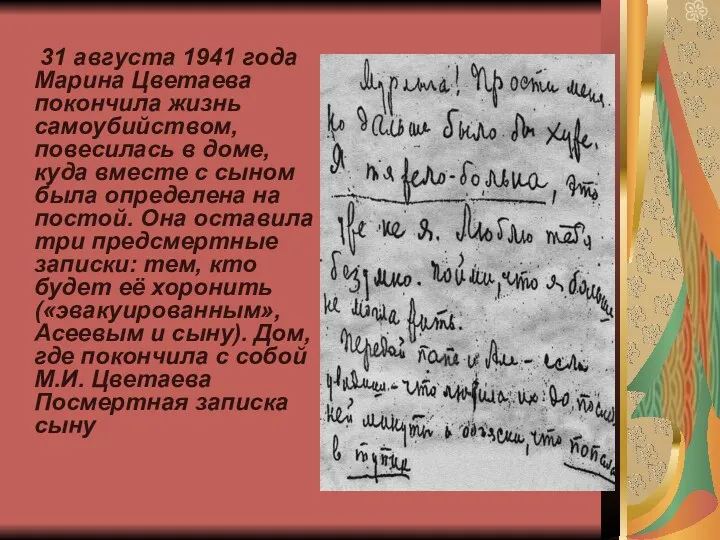 31 августа 1941 года
Марина Цветаева
покончила жизнь
самоубийством,
повесилась в доме,
куда вместе с сыном
была определена на
постой. Она оставила
три предсмертные
записки: тем, кто
будет её хоронить
(«эвакуированным»,
Асеевым и сыну). Дом,
где покончила с собой
М.И. Цветаева
Посмертная записка
сыну
Мурлыга! Прости меня
но дальше было бы хуже.
Я тяжело-больна, это
уже не я. Люблю тебя
безумно. Пойми, что я больше
не могла жить.
Передай папе и Але - если
увидишь - что любила их до последней
минуты и объясни, что попала
в тупик